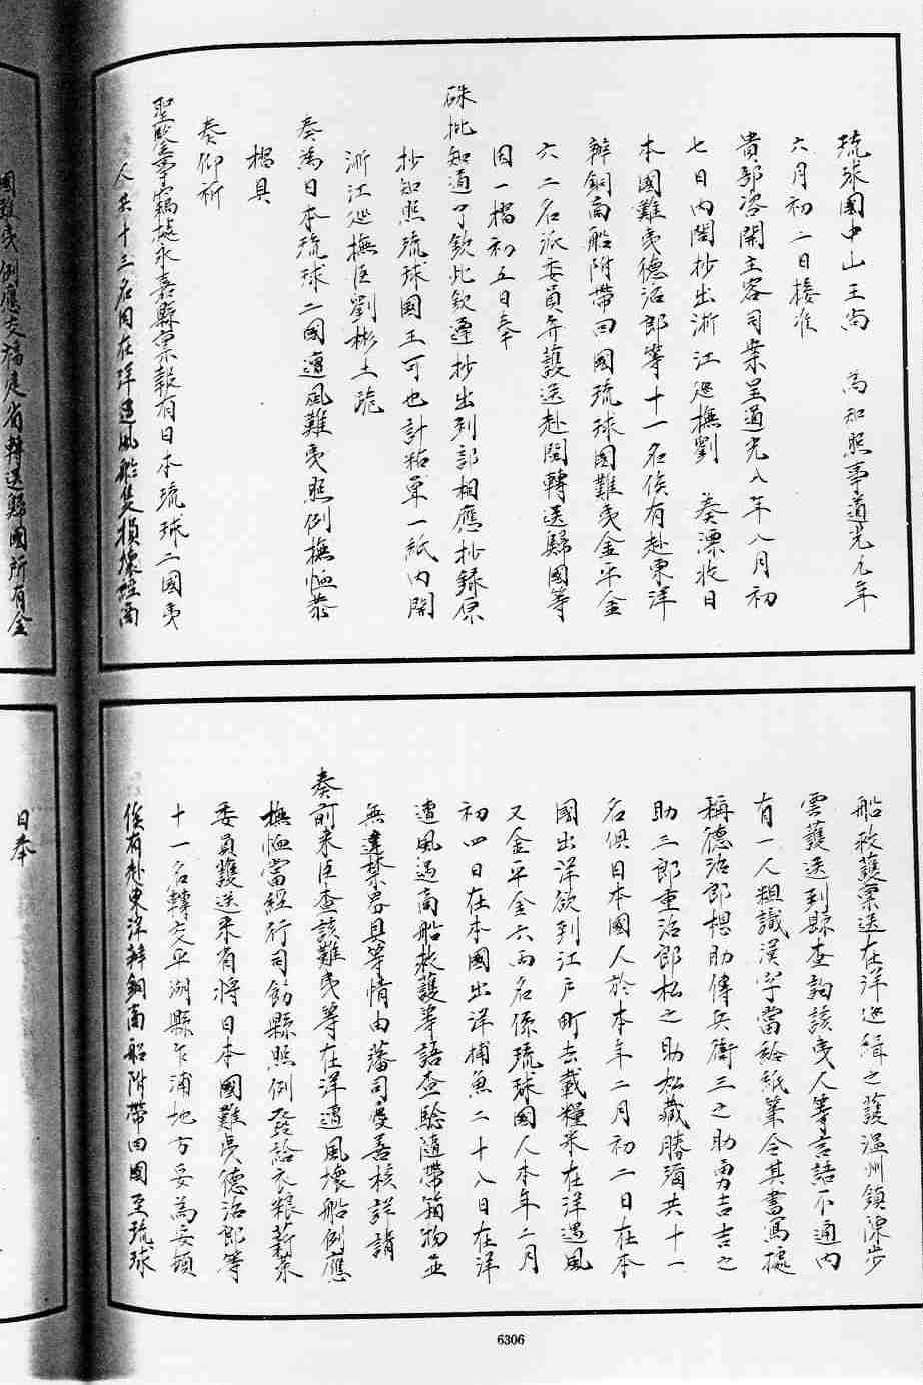 琉球國中山王尚 為知照事道光元年
六月初二日接准
貴部咨開主客司案呈道光八年八月初
七日內閣抄出浙江巡撫劉 奏漂收日
本國難夷德治郎等十一名俟有赴東洋
辦銅商船附帶回國琉球國難夷金平金
六二名派委員弁護送赴閩轉送歸國等
因一摺初五日奉
硃批知道了欽此欽遵抄出到部相應抄錄原
抄知照琉球國王可也計粘單一紙內開
浙江巡撫臣劉彬士跪
奏為日本琉球二國遭風難夷照例撫恤恭
摺具
奏仰祈
聖鑒事竊據永嘉縣稟報有日本琉球二國夷
人共十三名同在洋遭風船隻損壞經商
船救護稟送在洋巡緝之護溫州鎮陳步
雲護送到縣查詢該夷人等言語不通內
有一人粗識漢字當給紙筆令其書寫據
稱德治郎想助傳兵衛三之助勇吉吉之
助三郎重治郎松之助松藏勝酒共十一
名俱日本國人於本年二月初二日在本
國出洋欲到江戶町去載糧米在洋遇風
又金平金六兩名係琉球國人本年二月
初四日在本國出洋捕魚二十八日在洋
遭風遇商船救護等語查驗隨帶箱物並
無違禁器具等情由藩司慶善核詳請
奏前來臣查該難夷等在洋遭風壞船例應
撫恤當經行司飭縣照例發給衣糧薪菜
委員護送來省將日本國難夷德治郎等
十一名轉交平湖縣乍浦地方妥為安頓
俟有赴東洋辦銅商船附帶回國至琉球
國難夷例應交福建省轉送歸國所有金
日奉
6306